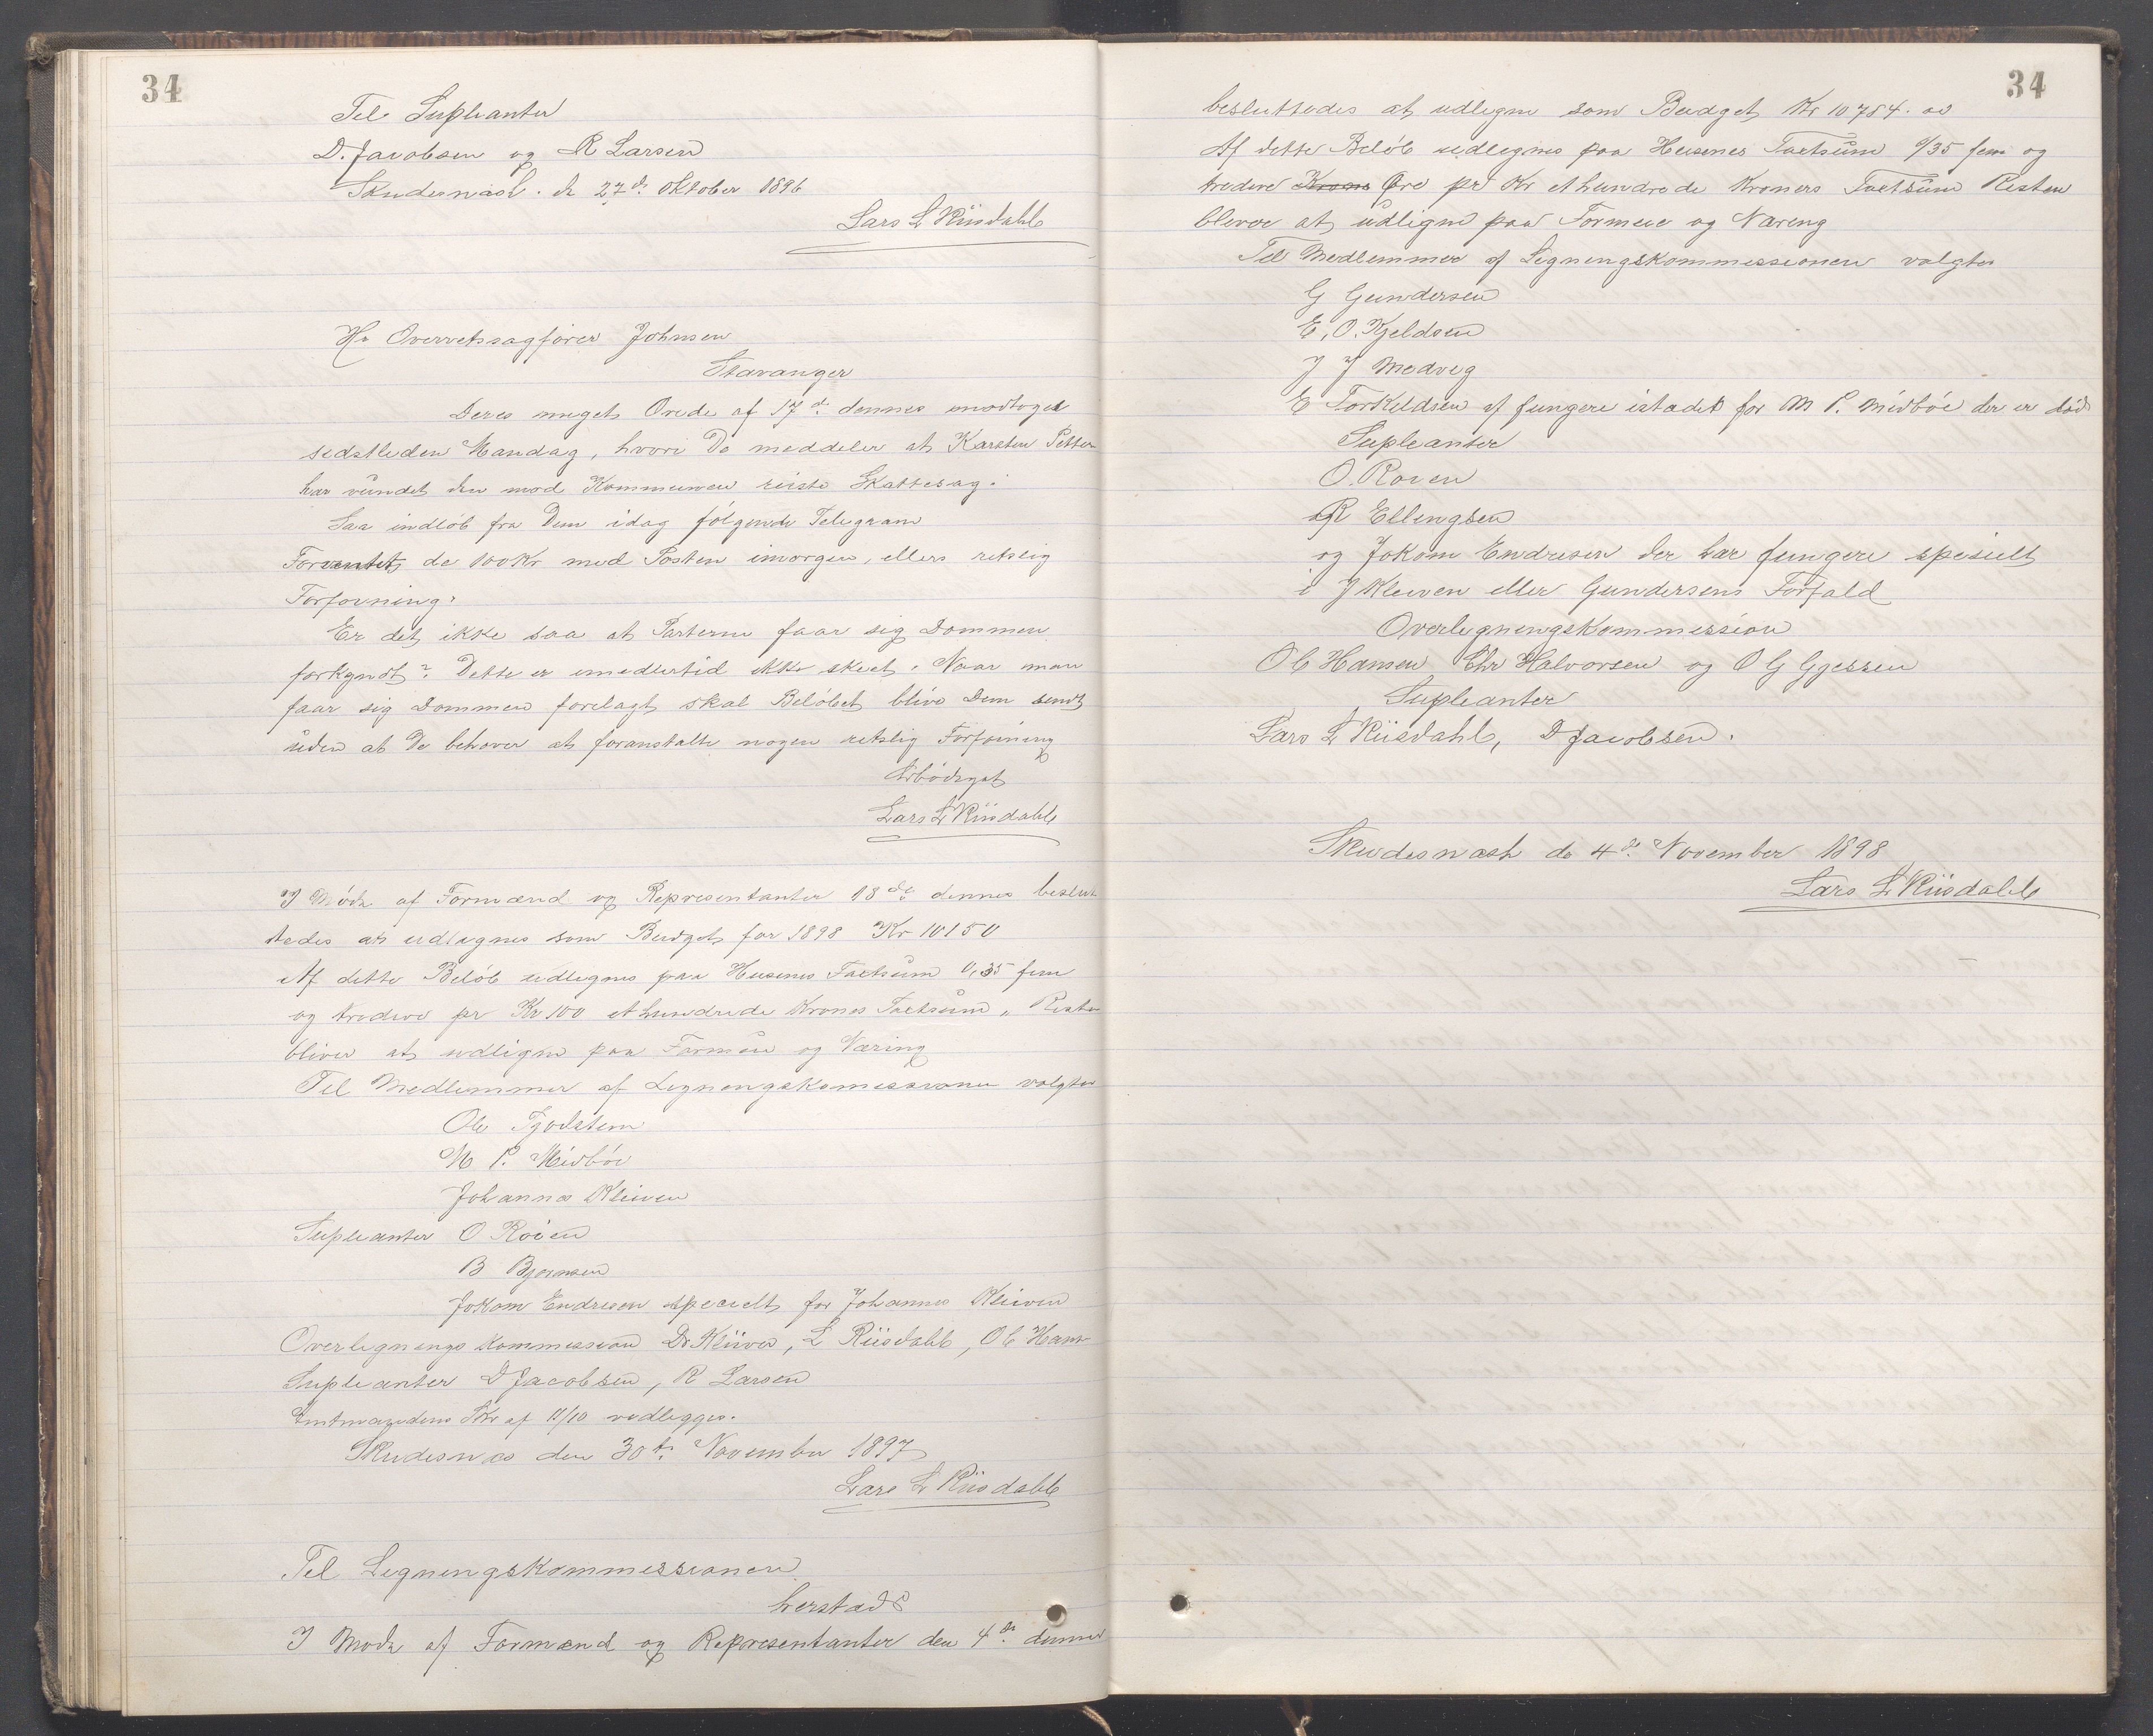 34
Til Supleanter
D. Jacobsen og R Larsen
Skudesnæsh. d 27de Oktober 1896
Lars L Riisdahl
Hr Overretssagfører Johnsen
Stavanger
Deres meget Ærede af 17de dennes modtoges
sidstleden Mandag, hvori De meddeler at Karsten Petter
har vundet den mod Kommunen reiste Skattesag.
Saa indløb fra Dem idag følgende Telegram
Forventet de 100 Kr med Posten imorgen, ellers retslig
Forføining.
Er det ikke saa at Parterne faar sig Dommen
forkyndt? Dette er imedlertid ikke skeet. Naar man
faar sig Dommen forelagt skal Beløbet blive Dem sendt
uden at De behøver at foranstalte nogen retslig Forføining
Ærbødigst
Lars L Riisdahl
I Møde af Formænd og Representanter 18de dennes beslut
tedes at udlignes som Budget for 1898 Kr 10150
Af dette Beløb udlignes paa Husenes Taxtsum 0,35 fem
og tredive pr Kr 100 et hundrede Krones Taxtsum " Resten
bliver at udligne paa Formue og Næring
Til Medlemmer af Ligningskomissionen valgtes
Ole Tjodstem
M P. Midbøe
Johannes Kleiven
Supleanter O Roien
B Bjørnsen
Jokom Endresen specielt for Johannes Kleiven
Overlignings kommission Dr Kliver, L Riisdahl, Ole Hans
Supleanter D Jacobsen, R Larsen
Amtmandens Skr af 11/10 vedlegges.
Skudesnæs den 30te November 1897
Lars L Riisdahl
Til Ligningskommissionen
herstads
I Møde af Formænd og Representanter den 4de dennes
34
besluttedes at udligne som Budget Kr 10754.00
Af dette Beløb udlignes paa Husenes Taxtsum 0/35 fem og
tredive Krone Øre pr Kr et hundrede Kroners Taxtsum Resten
bliver at udligne paa Formue og Næring
Til Medlemmer af Ligningskommissionen valgtes
G Gundersen
E. O. Kjeldsen
J J Medveg
E Torkeldsen af fungere istadet for M P. Midbøe der er død
Supleanter
O. Roven
R Ellingsen
og Jokom Endresen der har fungere spesielt
i J Kleiven eller Gundersens Forfald
Overligningskommission
Ole Hansen Chr Halvorsen og O G Gjessen
Supleanter
Lars L Riisdahl, D Jacobsen.
Skudesnæsh de 4de November 1898
Lars L Riisdahl